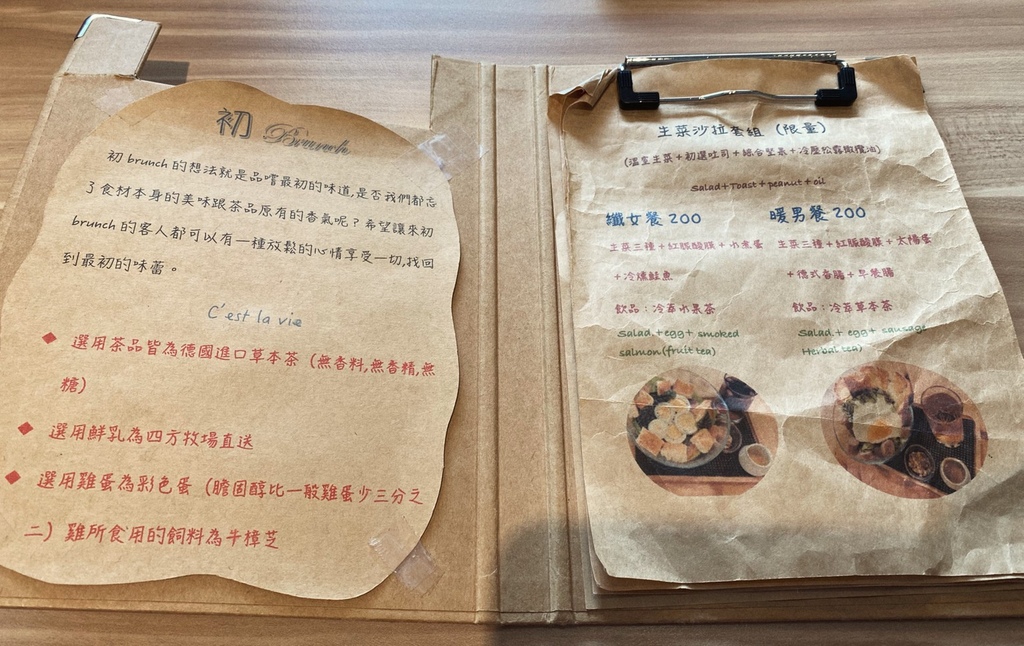 初 Brunch
初 brunch 的想法就是品嚐最初的味道,是否我們都忘
了食材本身的美味跟茶品原有的香氣呢？希望讓來初
brunch 的客人都可以有一種放鬆的心情享受一切,找回
到最初的味蕾。
C'est la vie
◆ 選用茶品皆為德國進口草本茶（無香料,無香精,無
糖）
◆ 選用鮮乳為四方牧場直送
◆ 選用雞蛋為彩色蛋（膽固醇比一般雞蛋少三分之
二）雞所食用的飼料為牛樟芝
生菜沙拉套組（限量）
(溫室生菜+初選吐司+綜合堅果+冷壓松露橄欖油)
Salad+Toast+peanut+oil
纖女餐 200
生菜三種+紅藜饅頭+水煮蛋
+冷燻鮭魚
飲品：冷萃水果茶
Salad +egg+ smoked
salmon(fruit tea)
暖男餐 200
生菜三種+紅藜饅頭+太陽蛋
+德式香腸+早餐腸
飲品：冷萃草本茶
Salad + egg+ sausage
Herbal tea)